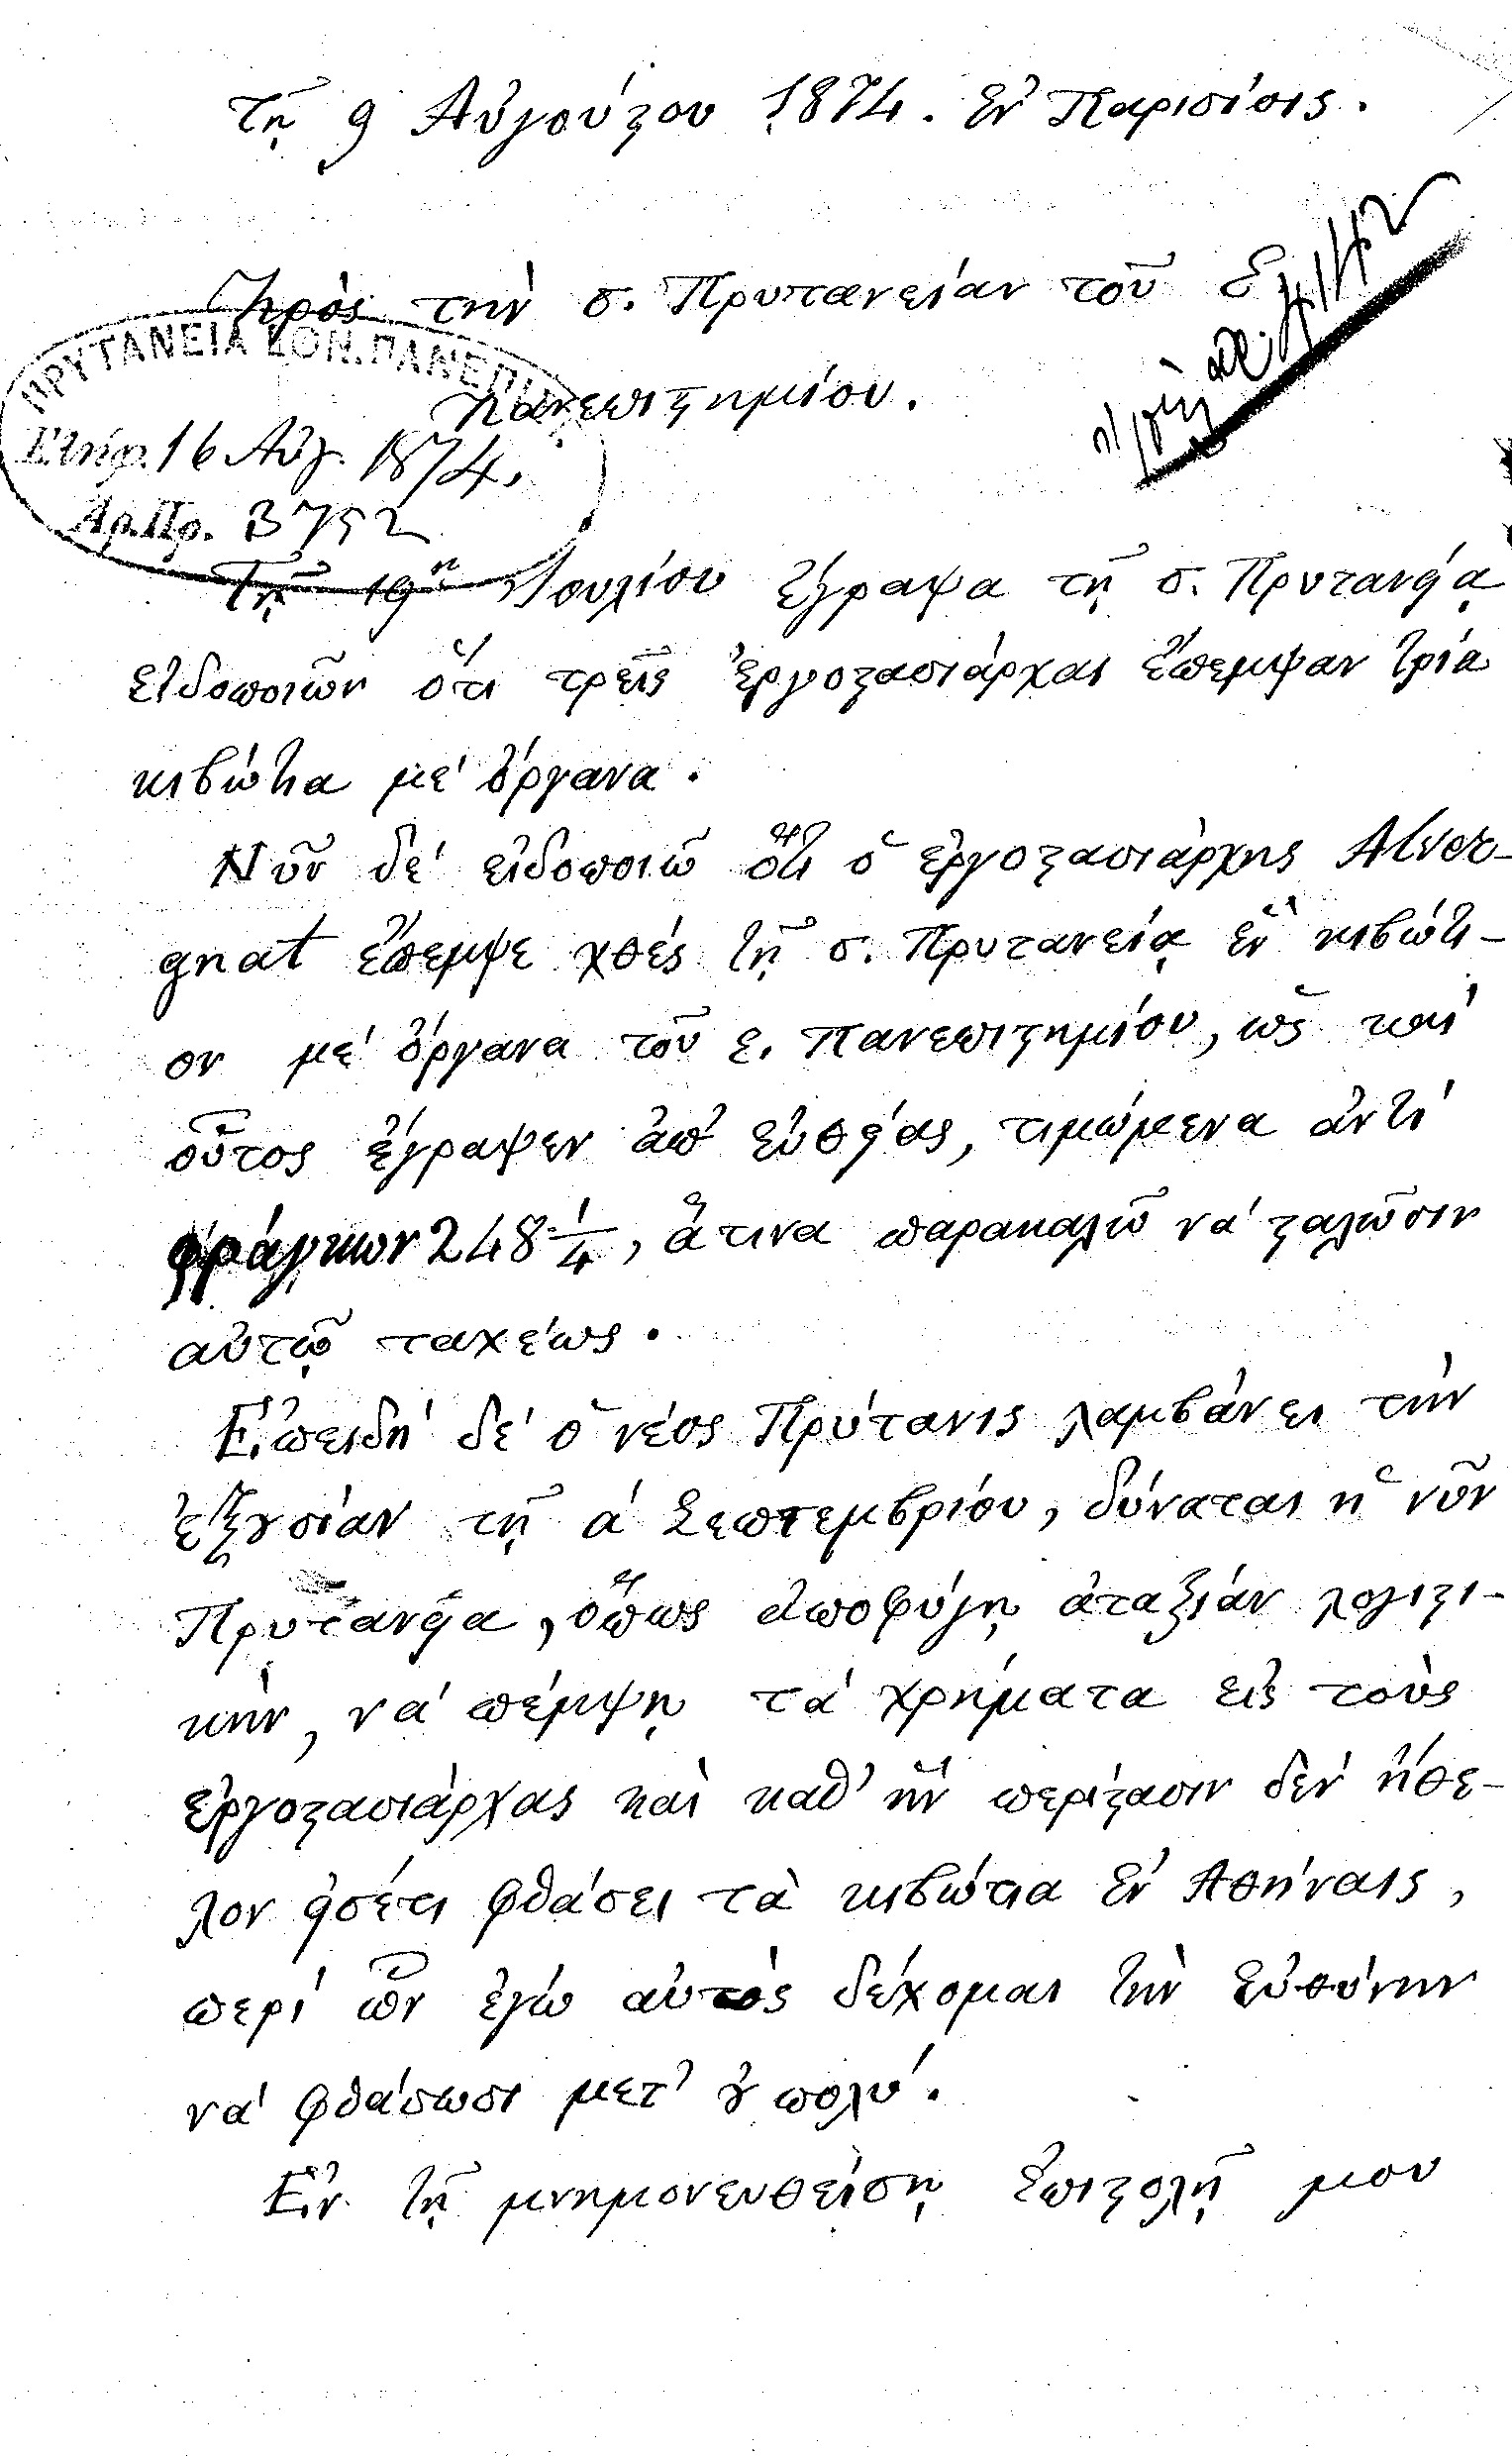 τῇ 9 Αὐγούστου 1874. Ἐν Παρισίοις.
Πρὸς τὴν σ. Πρυτανείαν τοῦ Ε.
Πανεπιστημίου.
ΠΡΥΤΑΝΕΙΑ ΕΘΝ. ΠΑΝΕΠΙΣ
Ἐλήφ. 16 Αὐγ. 1874.
Ἀρ. Πρ. 3752
Τῇ 19ῃ Ἰουλίου ἔγραψα τῇ σ. Πρυτανείᾳ
εἰδοποιῶν ὅτι τρεῖς ἐργοστασιάρχαι ἔπεμψαν τρία
κιβώτια μὲ ὄργανα.
Νῦν δὲ εἰδοποιῶ ὅτι ὁ ἐργοστασιάρχης Alver-
gnat ἔπεμψε χθές τῇ σ. Πρυτανείᾳ ἓν κιβώτι-
ον μὲ ὄργανα τοῦ ε. Πανεπιστημίου, ὡς καὶ
οὗτος ἔγραψεν ἀπ' εὐθείας, τιμώμενα ἀντὶ
φράγκων 248 1/4, ἅτινα παρακαλῶ νὰ σταλῶσιν
αὐτῷ ταχέως.
Ἐπειδὴ δὲ ὁ νέος Πρύτανις λαμβάνει τὴν
ἐξουσίαν τῇ ά Σεπτεμβρίου, δύναται ἡ νῦν
Πρυτανεία, ὅπως ἀποφύγῃ ἀταξίαν λογιστι-
κήν, νὰ πέμψῃ τὰ χρήματα εἰς τοὺς
ἐργοστασιάρχας καὶ καθ' ἣν περίστασιν δὲν ἤθε-
λον εἰσέτι φθάσει τὰ κιβώτια ἐν Ἀθήναις,
περὶ ὧν ἐγὼ αὐτὸς δέχομαι τὴν εὐθύνην
νὰ φθάσωσι μετ' οὐ πολύ.
Ἐν τῇ μνημονευθείσῃ ἐπιστολῇ μου